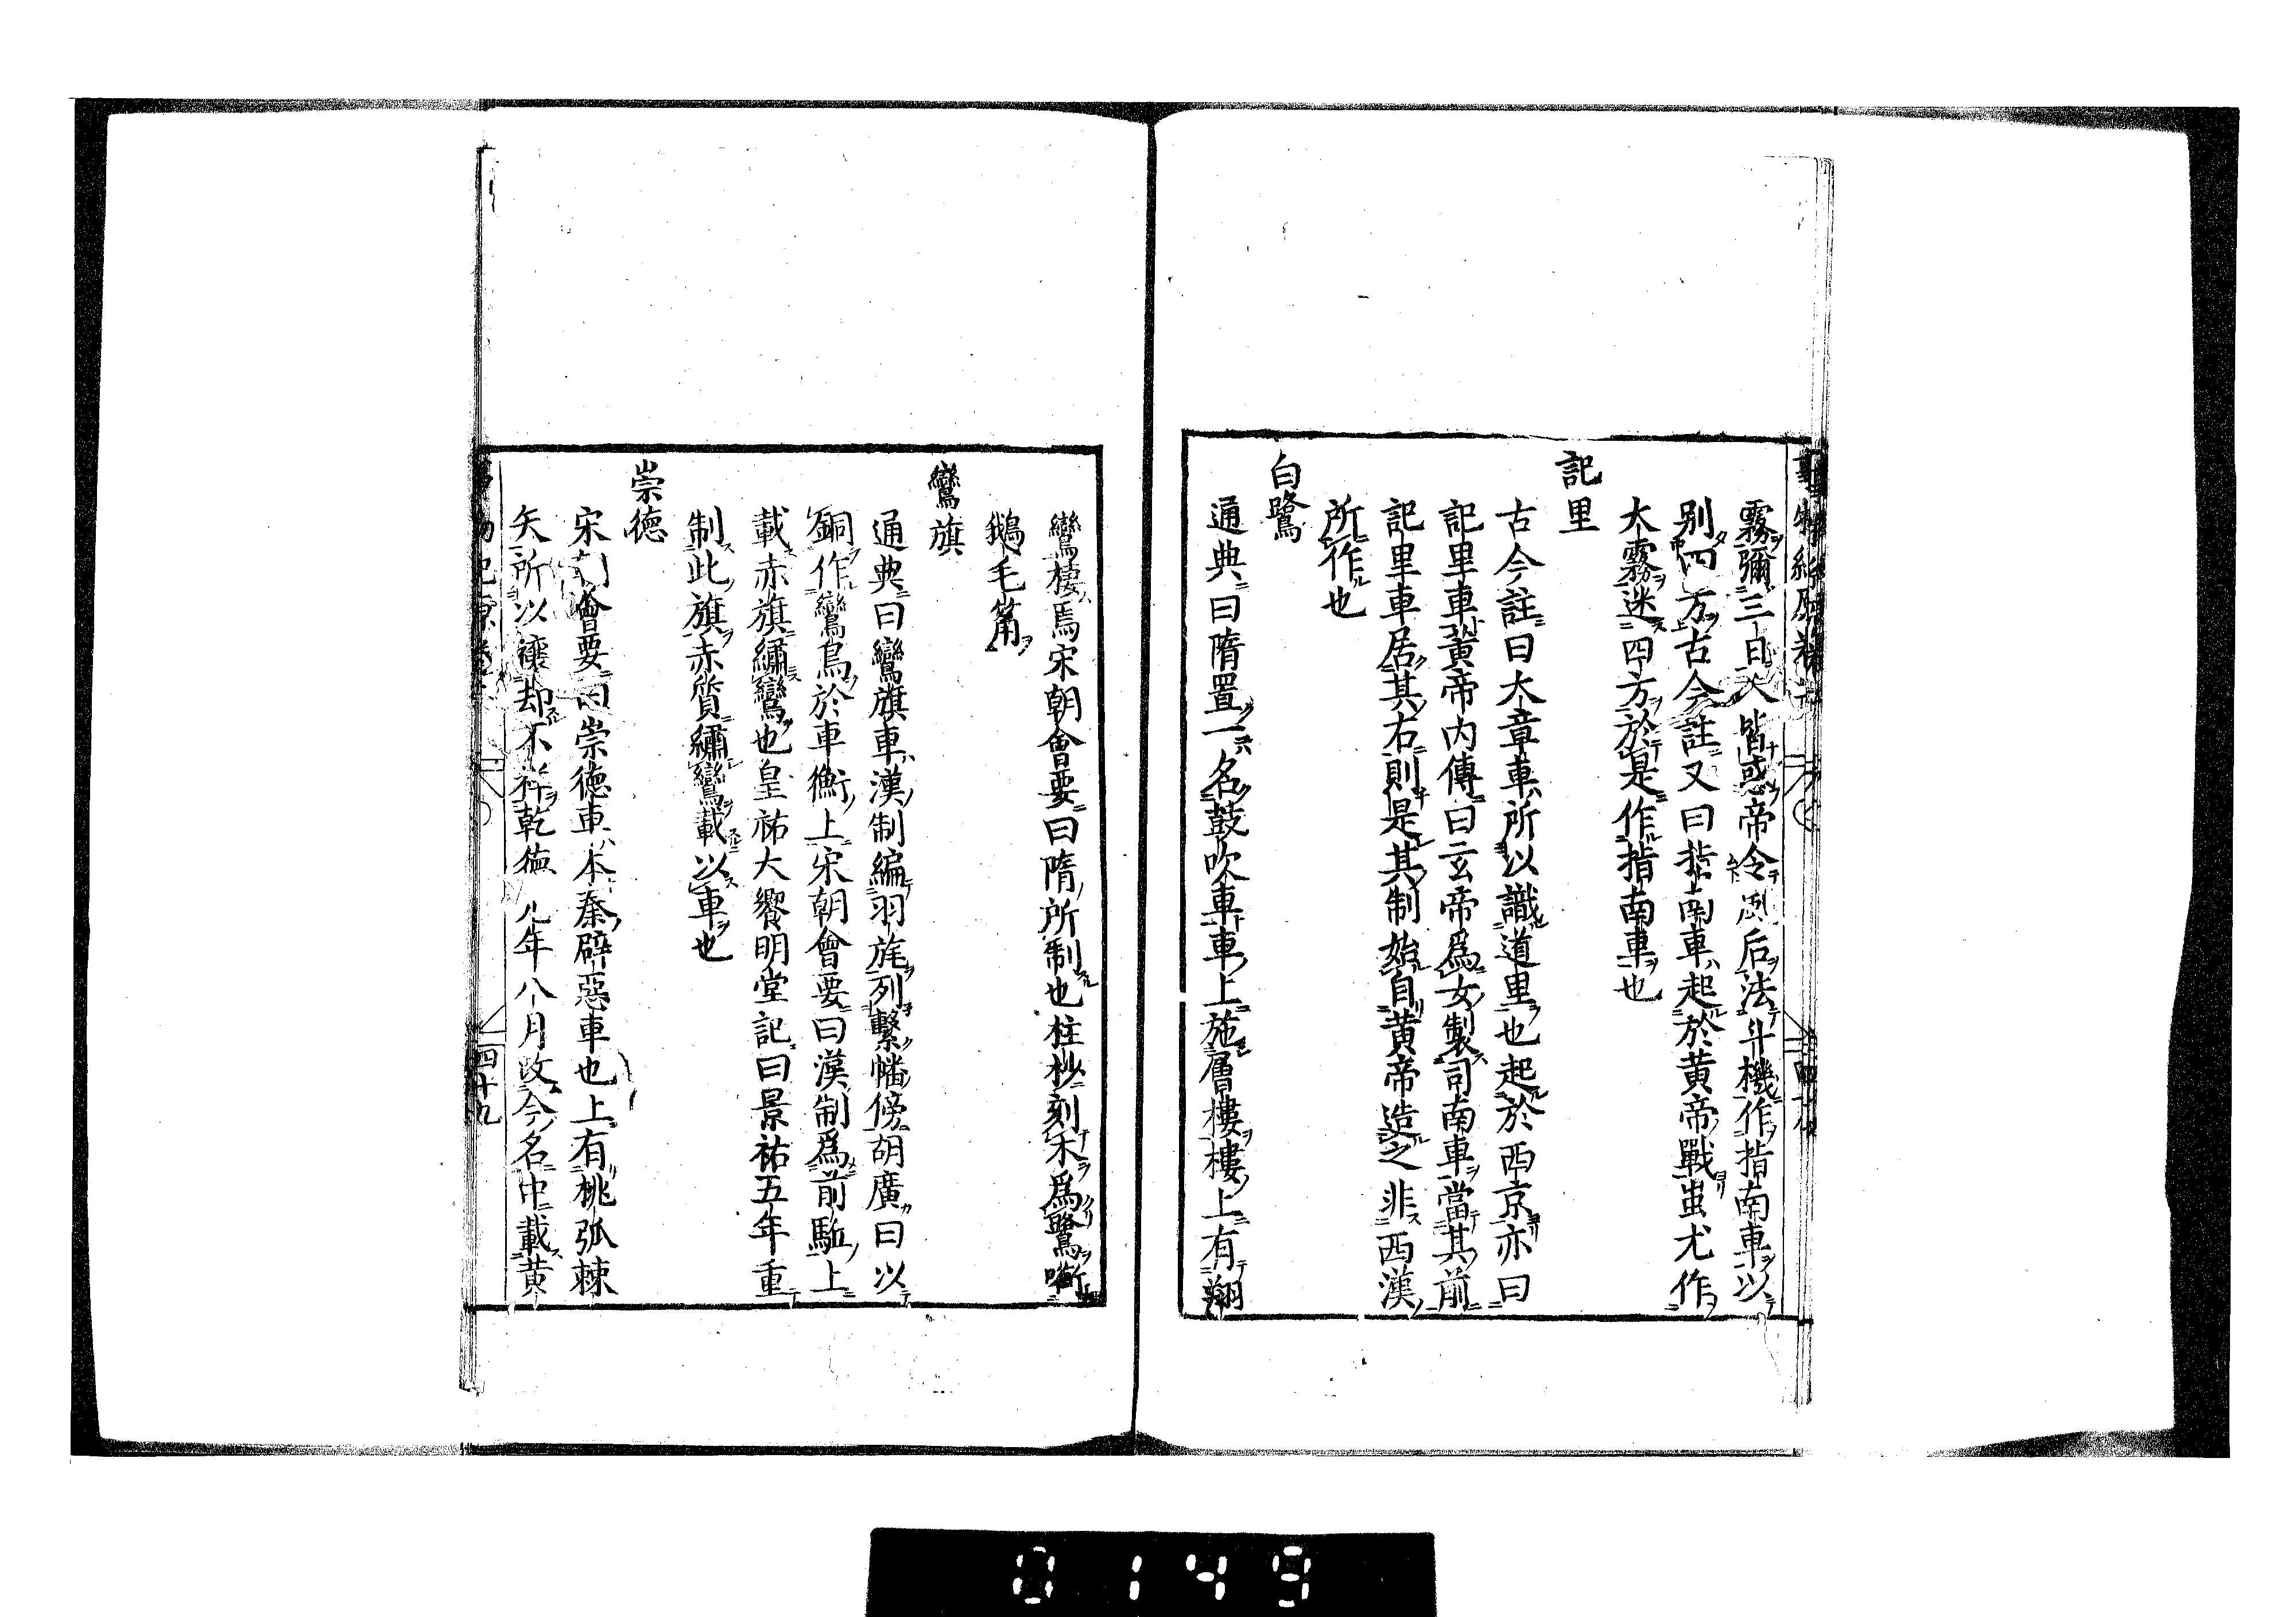 霧彌三日人皆惑帝令風后法斗機作指南車以
別四方古今註又曰指南車起於黄帝戰蚩尤作
大霧迷四方於是作指南車也
記里
古今註曰大章車所以識道里也起於西京亦曰
記里車黄帝内傳曰玄帝爲女製司南車當其前
記里車居其右則是其制始自黄帝造之非西漢
所作也
白鷺
通典曰隋置一名鼓吹車車上施層樓樓上有翔
鸞棲焉宋朝會要曰隋所制也柱杪刻木爲鷺啣
鵝毛筩
鸞旗
通典曰鸞旗車漢制編羽旄列繫幡傍胡廣曰以
銅作鸞鳥於車衡上宋朝會要曰漢制爲前駈上
載赤旗繡鸞也皇祐大饗明堂記曰景祐五年重
制此旗赤質繡鸞載以車也
崇德
宋朝會要曰崇德車本秦辟惡車也上有桃弧棘
矢所以禳却不祥乾德九年八月改今名中載黄
四十九
0149